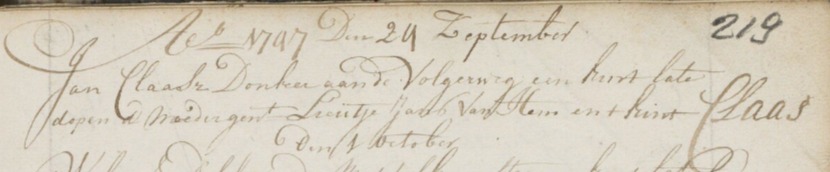 Ao 1747 Den 24 September 219
Jan Claasz Donker aan de Volgerweg een kint late
dopen d moeder gent Lieutje Jans Van Hem en t kint Claas
Den 1 October